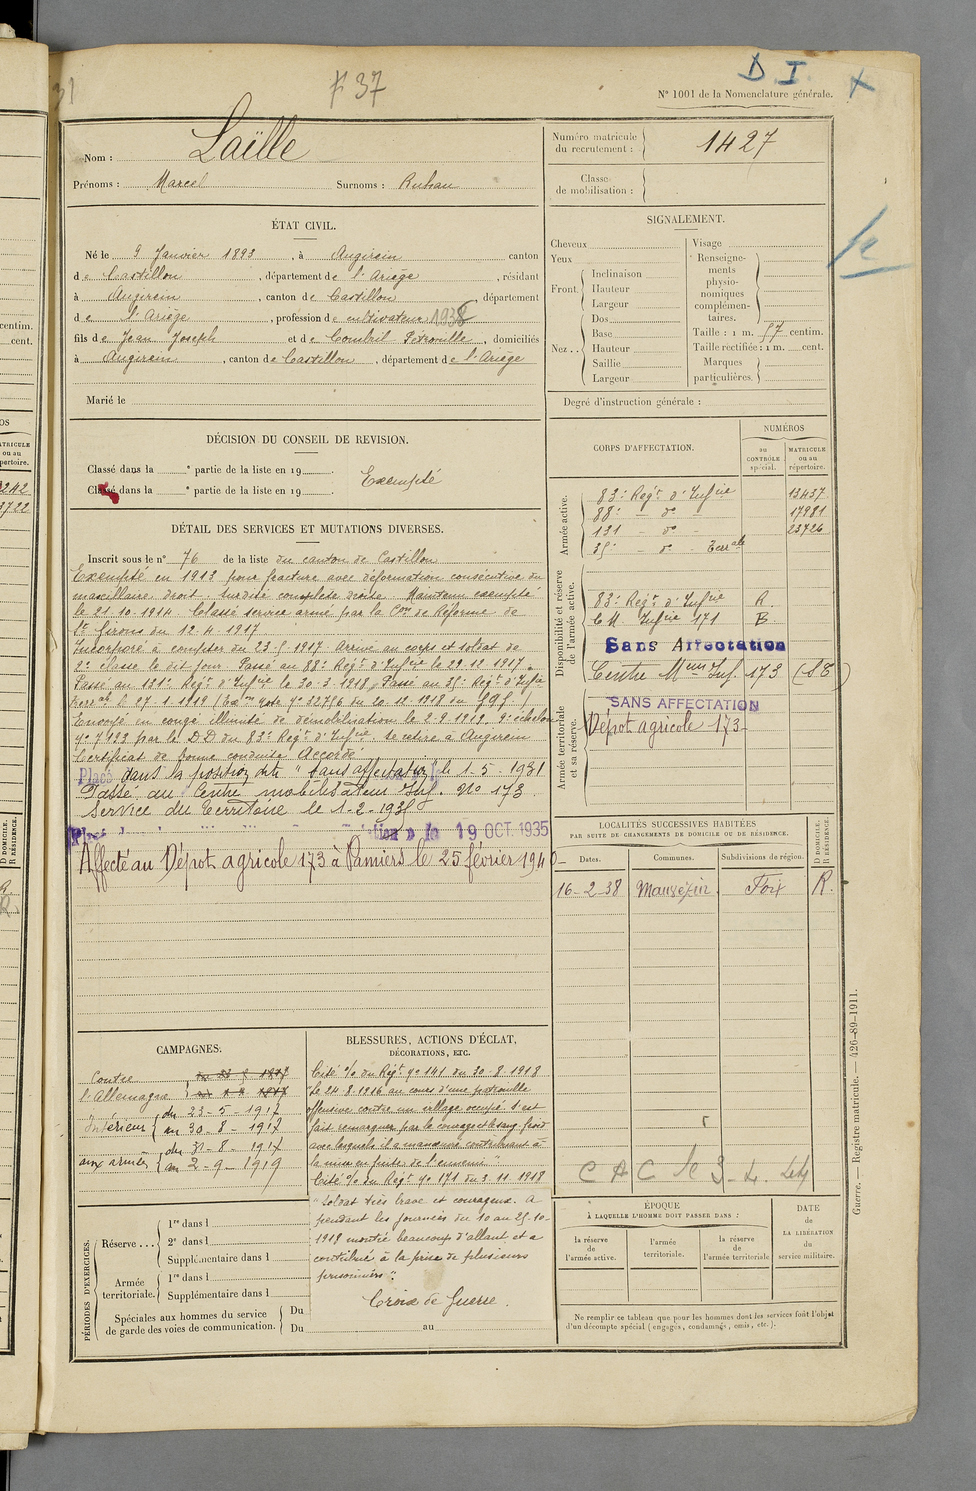 F 37
D I
N° 1001 de la Nomenclature générale.
Nom : Laïlle
Prénoms : Marcel Surnoms : Ruhau
Numéro matricule du recrutement : 1427
Classe de mobilisation :
ÉTAT CIVIL.
Né le 9 Janvier 1893, à Augirein canton
de Castillon, département de l'Ariège, résidant
à Augirein, canton de Castillon, département
de l'Ariège, profession de cultivateur 1938
fils de Jean Joseph et de Pétronille, domiciliés
à Augirein, canton de Castillon, département de l'Ariège
Marié le
SIGNALEMENT.
Cheveux
Yeux
Front. Inclinaison
Hauteur
Largeur
Nez.. Dos
Base
Hauteur
Saillie
Largeur
Visage
Renseignements
physionomiques
complémentaires.
Taille : 1 m. 57 centim.
Taille rectifiée : 1 m. cent.
Marques
particulières.
Degré d'instruction générale :
DÉCISION DU CONSEIL DE REVISION.
Classé dans la e partie de la liste en 19
Classé dans la e partie de la liste en 19
Exempté
DÉTAIL DES SERVICES ET MUTATIONS DIVERSES.
Inscrit sous le n° 76 de la liste du canton de Castillon
Exempté en 1913 pour fracture avec déformation consécutive du
maxillaire droit. Surdité complète droite. Maintenu exempté
le 21.10.1914. Classé service armé par la Con de Réforme de
St Girons du 12.4.1917
Incorporé à compter du 23.5.1917 Arrivé au corps et soldat de
2e classe le dit jour Passé au 88e Régt d'Infrie le 29.12.1917
Passé au 131e Régt d'Infrie le 30.3.1918, Passé au 35e Régt d'Infie
Terral le 27.1.1919
Envoyé en congé illimité de démobilisation le 2.9.1919, 9e échelon
n° 7193 par le D D du 83e Régt d'Infrie. Se retire à Augirein
Certificat de bonne conduite Accordé
Placé dans la position dite "sans affectation" le 1-5-1931
Passé au Centre mobilisateur Inf. No 173
Service du Territoire le 1-2-1935
19 OCT. 1935
Affecté au Dépot agricole 173 à Pamiers le 25 février 1940
CORPS D'AFFECTATION.
NUMÉROS
au CONTRÔLE spécial.
MATRICULE ou au répertoire.
Armée active.
83e Régt d'Infrie 13437
88e - do 17981
131 - do - 23726
35e - do - Terrale
Disponibilité et réserve de l'armée active.
83e Régt d'Infrie R.
C M Infrie 171 B.
Sans Affectation
Centre Meur Inf. 173 (S T)
Armée territoriale et sa réserve.
SANS AFFECTATION
Dépot agricole 173
LOCALITÉS SUCCESSIVES HABITÉES
PAR SUITE DE CHANGEMENTS DE DOMICILE OU DE RÉSIDENCE.
Dates. Communes. Subdivisions de région. D DOMICILE. R RÉSIDENCE.
16-2-38 Mauvezin Foix R.
C A C le 3-4.
CAMPAGNES.
Contre
l'Allemagne
Intérieur du 23-5-1917
au 30-8-1917
aux armées du 31-8-1917
au 2-9-1919
BLESSURES, ACTIONS D'ÉCLAT,
DÉCORATIONS, ETC.
Cité % du Régt no 141 du 30.8.1918
"Le 24.8.1916 au cours d'une patrouille
offensive contre un village occupé s'est
fait remarquer par le courage et le sang froid
avec lesquels il a manœuvré contribuant à
la mise en fuite de l'ennemi"
Cité % du Régt no 171 du 3.11.1918
"Soldat très brave et courageux. A
pendant les journées du 10 au 25-10-
1918 montré beaucoup d'allant et a
contribué à la prise de plusieurs
prisonniers".
Croix de Guerre.
PÉRIODES D'EXERCICES.
Réserve... 1re dans l
2e dans l
Supplémentaire dans l
Armée territoriale. 1re dans l
Supplémentaire dans l
Spéciales aux hommes du service de garde des voies de communication. Du
Du au
ÉPOQUE
À LAQUELLE L'HOMME DOIT PASSER DANS :
la réserve de l'armée active.
l'armée territoriale.
la réserve de l'armée territoriale
DATE de LA LIBÉRATION du service militaire.
Ne remplir ce tableau que pour les hommes dont les services font l'objet
d'un décompte spécial (engagés, condamnés, omis, etc.).
Guerre. — Registre matricule. — 426-89-1911.